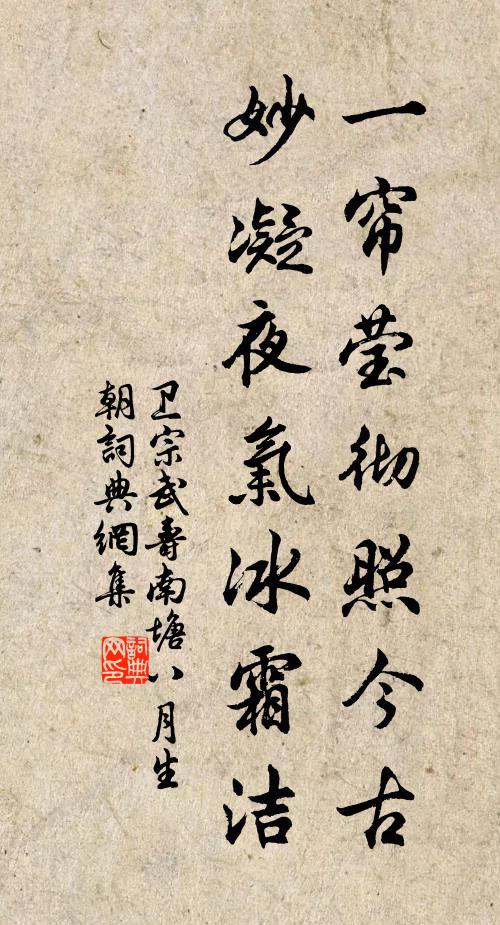 一帘莹彻照今古
妙凝夜氣冰霜洁
卫宗武寿南塘八月生
朝詞典網集
詞典
网印